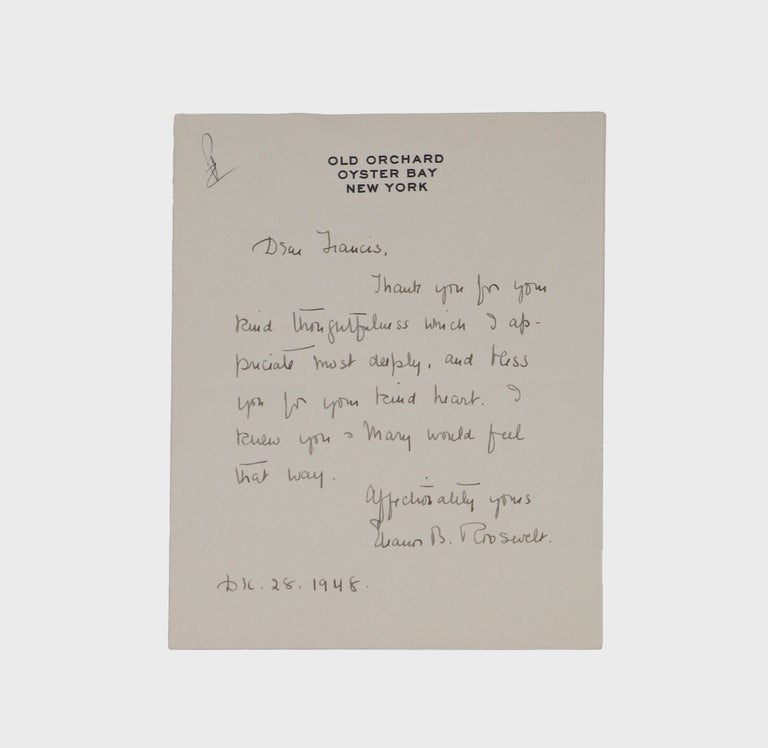 OLD ORCHARD
OYSTER BAY
NEW YORK
Dear Francis,
Thank you for your
kind thoughtfulness which I ap-
preciate most deeply, and bless
you for your kind heart. I
knew you & Mary would feel
that way.
Affectionately yours
Eleanor B. Roosevelt.
Dec. 28. 1948.